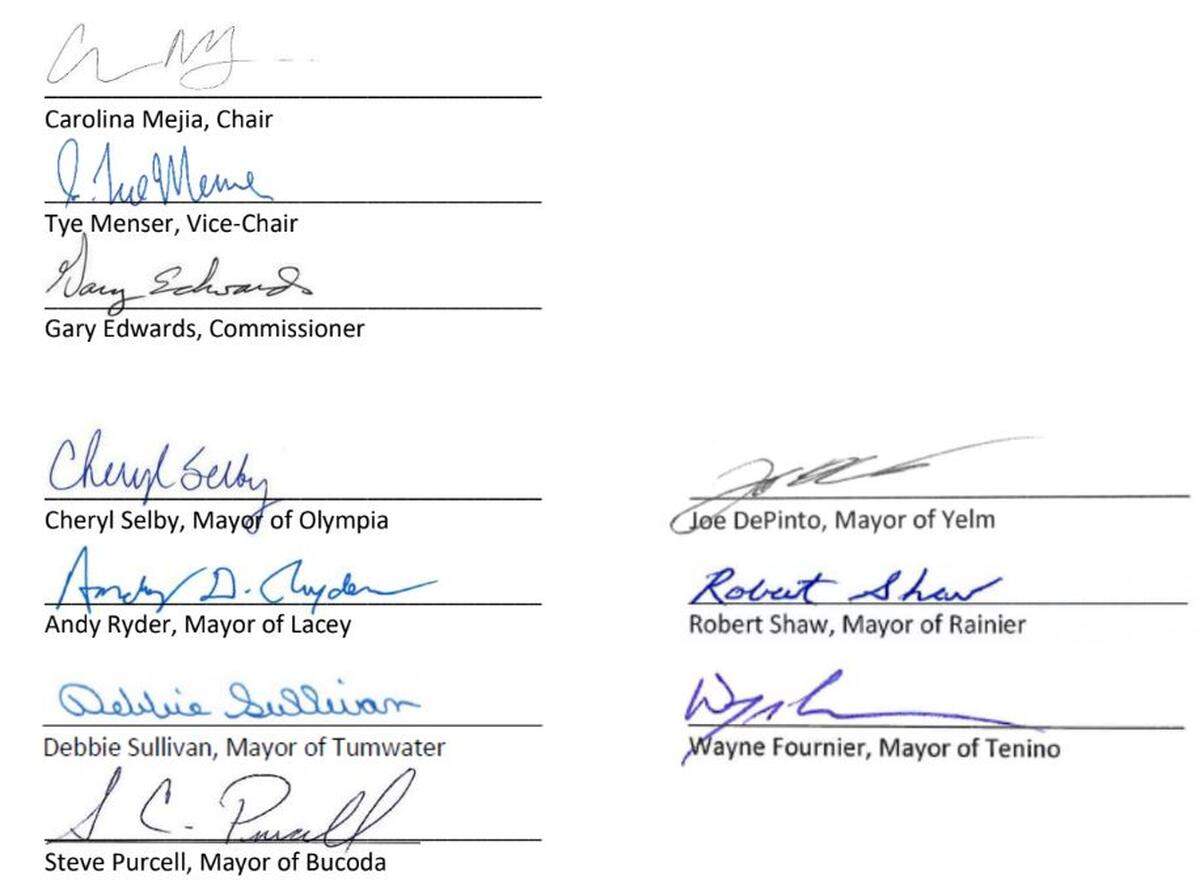 Carolina Mejia, Chair
J. Tye Menser
Tye Menser, Vice-Chair
Gary Edwards
Gary Edwards, Commissioner
Cheryl Selby
Cheryl Selby, Mayor of Olympia
Joe DePinto, Mayor of Yelm
Andy D. Ryder
Andy Ryder, Mayor of Lacey
Robert Shaw
Robert Shaw, Mayor of Rainier
Debbie Sullivan
Debbie Sullivan, Mayor of Tumwater
Wayne Fournier, Mayor of Tenino
S C. Purcell
Steve Purcell, Mayor of Bucoda